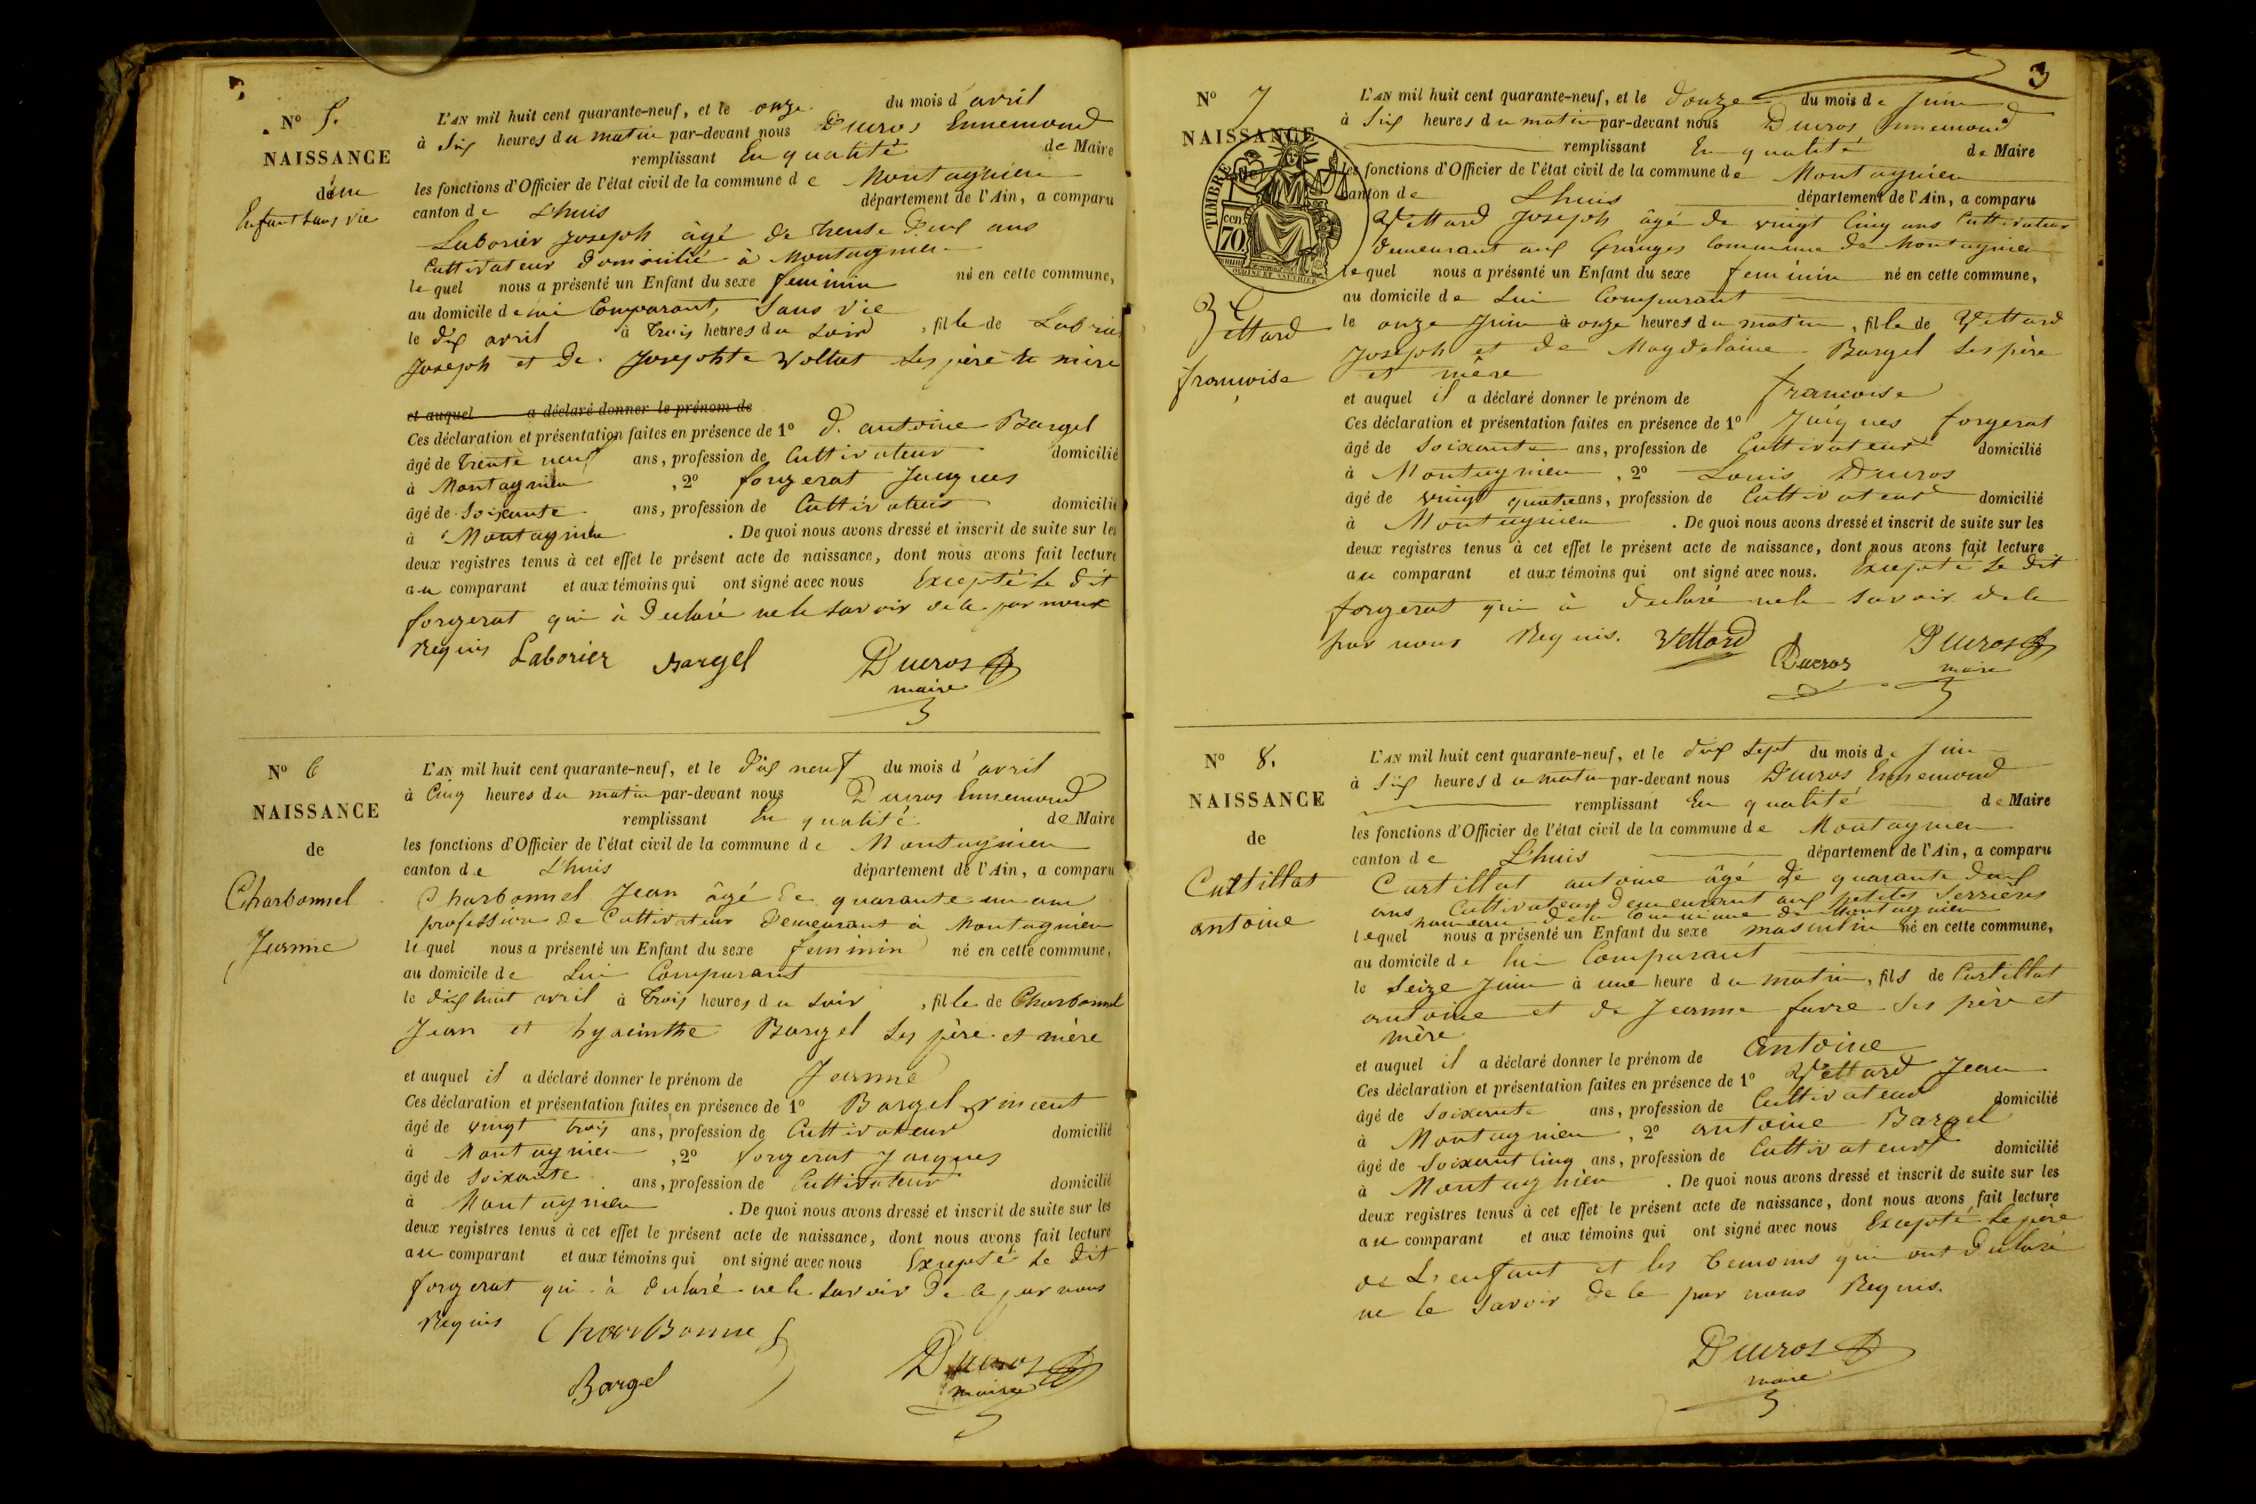 N° 5.
NAISSANCE
d'un
Enfant sans vie
L'AN mil huit cent quarante-neuf, et le onze du mois d'avril
à six heures du matin par-devant nous Ducros Ennemond
remplissant En qualité de Maire
les fonctions d'Officier de l'état civil de la commune de Montagnieu
canton de Lhuis département de l'Ain, a comparu
Laborier Joseph âgé de trente deux ans
Cultivateur domicilié à Montagnieu
lequel nous a présenté un Enfant du sexe feminin né en cette commune,
au domicile de lui Comparant, Sans vie
le dix avril à trois heures du soir, fille de
Joseph et de Josephte Vollat ses père et mère
et auquel a déclaré donner le prénom de
Ces déclaration et présentation faites en présence de 1° d. antoine Bargel
âgé de trente neuf ans, profession de Cultivateur domicilié
à Montagnieu, 2° forgerat Jacques
âgé de soixante ans, profession de Cultivateur domicilié
à Montagnieu. De quoi nous avons dressé et inscrit de suite sur les
deux registres tenus à cet effet le présent acte de naissance, dont nous avons fait lecture
au comparant et aux témoins qui ont signé avec nous Excepté le dit
forgerat qui à declaré ne le savoir de ce par nous
Requis Laborier Bargel Ducros
maire
N° 6
NAISSANCE
de
Charbonnel
Jeanne
L'AN mil huit cent quarante-neuf, et le dix neuf du mois d'avril
à Cinq heures du matin par-devant nous Ducros Ennemond
remplissant En qualité de Maire
les fonctions d'Officier de l'état civil de la commune de Montagnieu
canton de Lhuis département de l'Ain, a comparu
Charbonnel Jean âgé de quarante un ans
profession de Cultivateur Demeurant à Montagnieu
lequel nous a présenté un Enfant du sexe feminin né en cette commune,
au domicile de Lui Comparant
le dix huit avril à trois heures du soir, fille de Charbonnel
Jean et hyacinthe Bargel ses père et mère
et auquel il a déclaré donner le prénom de Jeanne
Ces déclaration et présentation faites en présence de 1° Bargel vincent
âgé de vingt trois ans, profession de Cultivateur domicilié
à Montagnieu, 2° forgerat Jacques
âgé de soixante ans, profession de Cultivateur domicilié
à Montagnieu. De quoi nous avons dressé et inscrit de suite sur les
deux registres tenus à cet effet le présent acte de naissance, dont nous avons fait lecture
au comparant et aux témoins qui ont signé avec nous Excepté le dit
forgerat qui à declaré ne le savoir de ce par nous
Requis CharBonnel
Bargel Ducros
maire
3
N° 7
NAISSANCE
de
TIMBRE
cen. 70
Vettard
francoise
L'AN mil huit cent quarante-neuf, et le douze du mois de Juin
à six heures du matin par-devant nous Ducros Ennemond
remplissant En qualité de Maire
les fonctions d'Officier de l'état civil de la commune de Montagnieu
canton de Lhuis département de l'Ain, a comparu
Vettard Joseph âgé de vingt Cinq ans Cultivateur
demeurant aux Granges Commune de Montagnieu
lequel nous a présenté un Enfant du sexe feminin né en cette commune,
au domicile de Lui Comparant
le onze Juin à onze heures du matin, fille de Vettard
Joseph et de Magdelaine Bargel ses père
et mère
et auquel il a déclaré donner le prénom de francoise
Ces déclaration et présentation faites en présence de 1° Jacques forgerat
âgé de soixante ans, profession de Cultivateur domicilié
à Montagnieu, 2° Louis Ducros
âgé de vingt quatre ans, profession de Cultivateur domicilié
à Montagnieu. De quoi nous avons dressé et inscrit de suite sur les
deux registres tenus à cet effet le présent acte de naissance, dont nous avons fait lecture
au comparant et aux témoins qui ont signé avec nous. Excepté le dit
forgerat qui à declaré ne le savoir de ce
par nous Requis. Vettard Ducros Ducros
maire
N° 8.
NAISSANCE
de
Curtillat
antoine
L'AN mil huit cent quarante-neuf, et le dix sept du mois de Juin
à six heures du matin par-devant nous Ducros Ennemond
remplissant En qualité de Maire
les fonctions d'Officier de l'état civil de la commune de Montagnieu
canton de Lhuis département de l'Ain, a comparu
Curtillat antoine âgé de quarante deux
ans Cultivateur demeurant aux petites Serrières
hameau dela Commune de Montagnieu
lequel nous a présenté un Enfant du sexe masculin né en cette commune,
au domicile de lui Comparant
le seize Juin à une heure du matin, fils de Curtillat
antoine et de Jeanne favre ses père et
mère
et auquel il a déclaré donner le prénom de antoine
Ces déclaration et présentation faites en présence de 1° Vettard Jean
âgé de soixante ans, profession de Cultivateur domicilié
à Montagnieu, 2° antoine Bargel
âgé de soixant Cinq ans, profession de Cultivateur domicilié
à Montagnieu. De quoi nous avons dressé et inscrit de suite sur les
deux registres tenus à cet effet le présent acte de naissance, dont nous avons fait lecture
au comparant et aux témoins qui ont signé avec nous Excepté le père
de L'enfant et les temoins qui ont declaré
ne le savoir de ce par nous Requis.
Ducros
maire